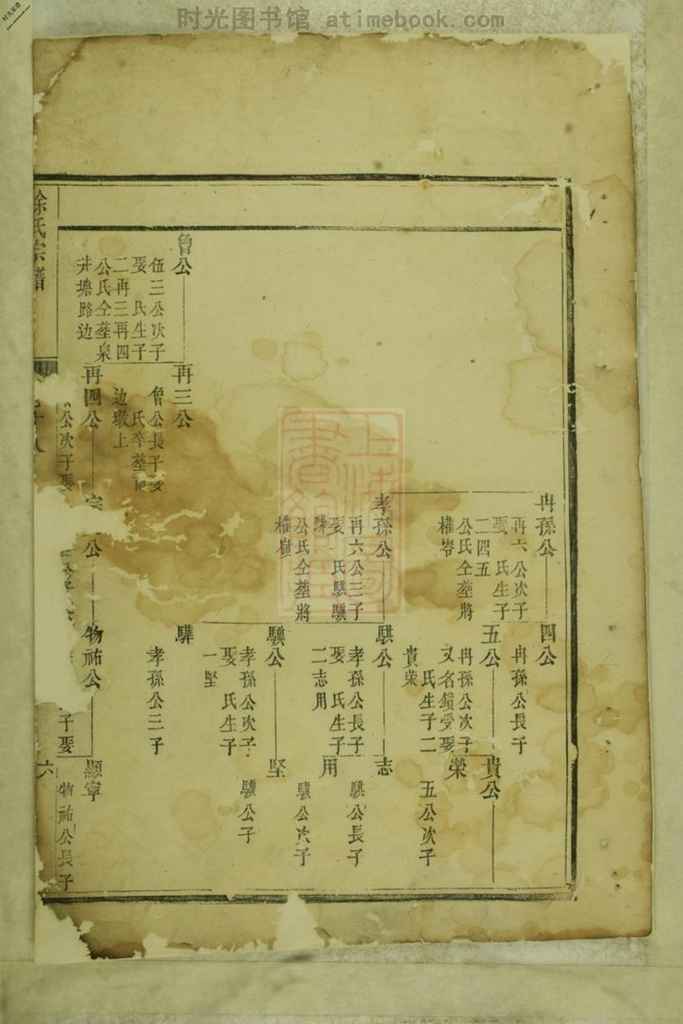 时光图书馆 atimebook.com
冉孫公
再六公次子
娶 氏生子
二四五
公氏仝塟將
權嶺
四公
冉孫公長子
五公
冉孫公次子
又名鎖受娶
氏生子二
貴榮
貴公
榮
五公次子
孝孫公
再六公三子
娶 氏騏驥
驊
公氏仝塟將
權嶺
騏公
孝孫公長子
娶 氏生子
二志用
志
騏公長子
用
騏公次子
驥公
孝孫公次子
娶 氏生子
一堅
堅
驥公子
驊
孝孫公三子
曾公
伍三公次子
娶 氏生子
二再三再四
公氏仝塟泉
井塢路边
再三公
曾公長子娶
边墩上
再四公
公次子娶
公
物祐公
子娶
顯寧
物祐公長子
徐氏宗譜
六